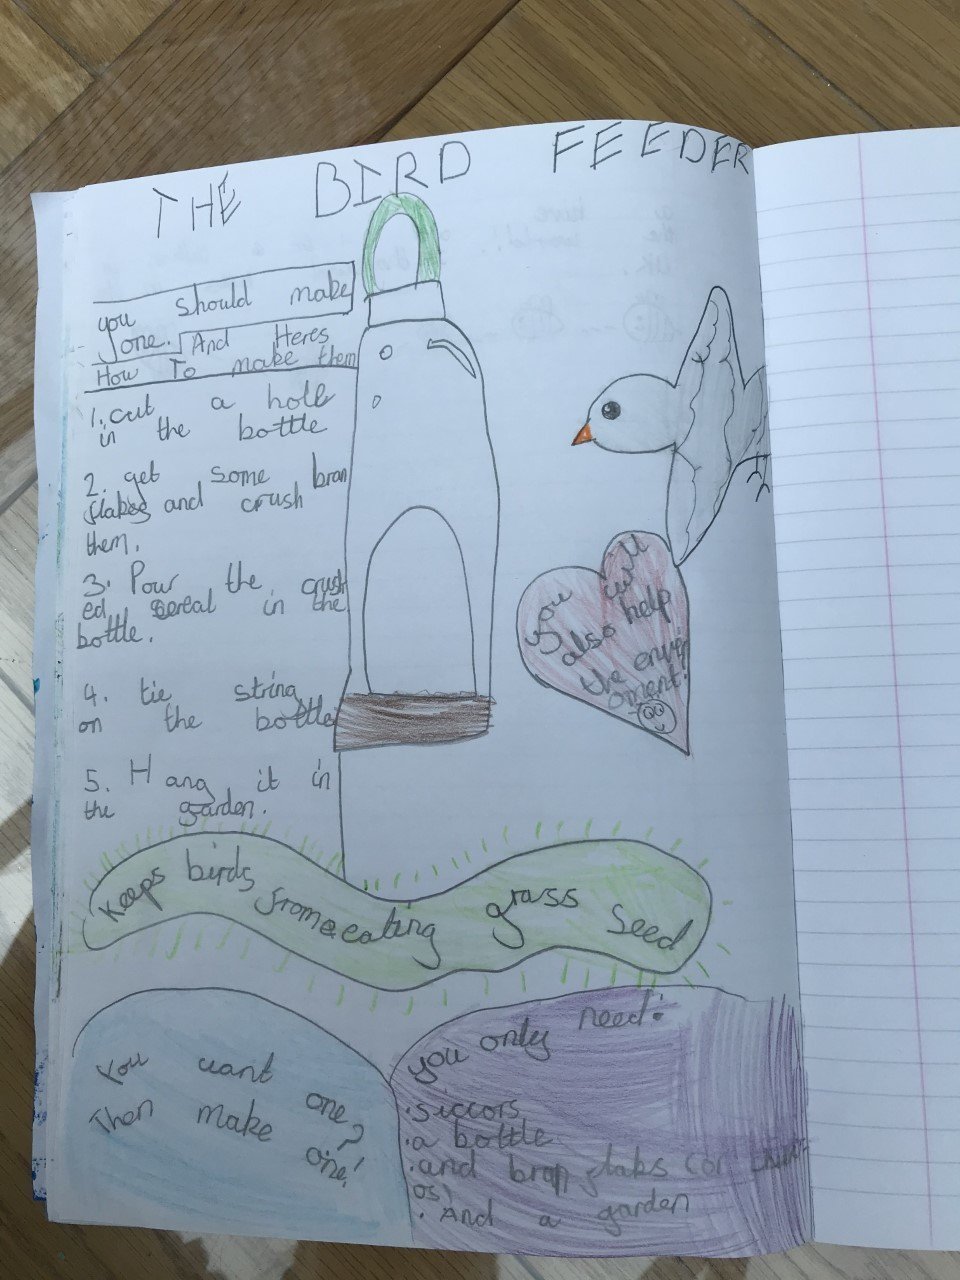 THE BIRD FEEDER
you should make
one. And Heres
How To make them
1. cut a hole
in the bottle
2. get some bran
flakes and crush
them.
3. Pour the crush
ed sereal in the
bottle.
4. tie string
on the bottle
5. Hang it in
the garden.
you will
also help
the envir
oment!
Keeps birds from eating grass Seed
You want one?
Then make one!
you only need:
. siccors
. a bottle
. and bran flaks (or
os)
. And a garden